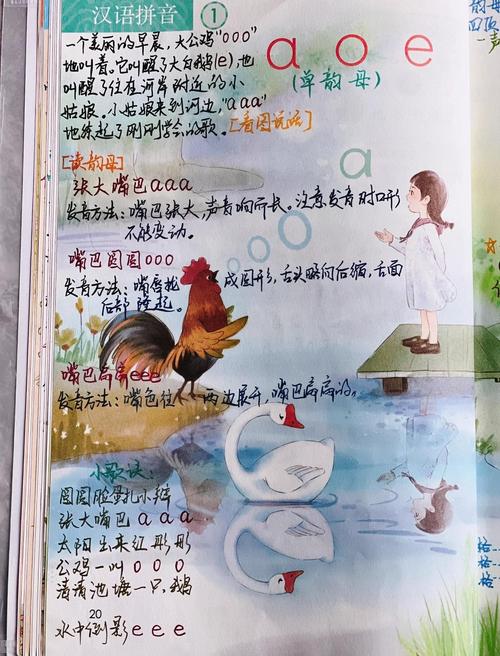 汉语拼音 ①
a o e
(单韵母)
一个美丽的早晨，大公鸡"ooo"
地叫着。它叫醒了大白鹅(e)，也
叫醒了住在河岸附近的小
姑娘。小姑娘来到河边，"aaa"
地练起了刚刚学会的歌。[看图说话]
a
[读韵母]
张大嘴巴aaa
发音方法：嘴巴张大，声音响而长。注意发音时口形
不能变动。
嘴巴圆圆ooo
发音方法：嘴唇拢 成圆形，舌头略向后缩，舌面
后部隆起。
嘴巴扁扁eee
发音方法：嘴角往 两边展开，嘴巴扁扁的。
小歌谣：
圆圆脸蛋扎小辫
张大嘴巴 a a a
太阳出来红彤彤
公鸡一叫 o o o
清清池塘一只鹅
20
水中倒影 e e e